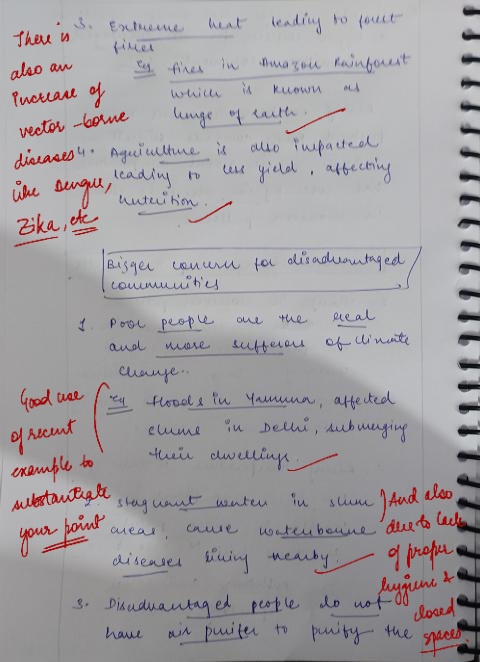 3. Extreme heat leading to forest
fires
Eg fires in Amazon Rainforest
which is known as
lungs of earth.
There is
also an
increase of
vector-borne
diseases
like Dengue,
Zika, etc
4. Agriculture is also impacted
leading to less yield, affecting
nutrition.
Bigger concern for disadvantaged
communities
1. Poor people are the real
and more sufferers of climate
change..
Eg Floods in Yamuna, affected
slums in Delhi, submerging
their dwellings.
Good use
of recent
example to
substantiate
your point
2. stagnant water in slum
areas, cause waterborne
diseases living nearby.
And also
due to lack
of proper
hygiene &
closed
spaces.
3. Disadvantaged people do not
have air purifer to purify the